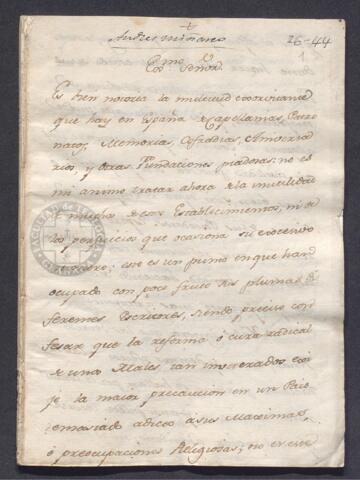 Andres minano
26-44
1
Exmo. Señor.
Es bien notoria la multitud exorvitante
que hay en España de Capellanias, Patro
natos, Memorias, Cofradias, Aniversa
rios, y otras Fundaciones piadosas: no es
mi animo tratar ahora de la inutilidad
de muchos de estos Establecimientos, ni de
los perjuicios que ocasiona su excesivo
este es un punto en que han
ocupado con poco fruto sus plumas di
ferentes Escritores, siendo preciso con
fesar que la reforma ó cura radical
de unos Males tan inveterados, exi
je la maior precaucion en un Pais
demasiado adicto a sus Maximas,
ó preocupaciones Religiosas; no es este